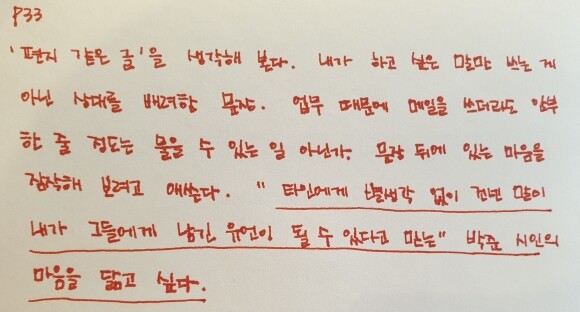 P33
'편지 같은 글'을 생각해 본다. 내가 하고 싶은 말만 쓰는 게
아닌 상대를 배려한 문장. 업무 때문에 메일을 쓰더라도 안부
한 줄 정도는 물을 수 있는 일 아닌가. 문장 뒤에 있는 마음을
짐작해 보려고 애쓴다. "타인에게 별생각 없이 건넨 말이
내가 그들에게 남긴 유언이 될 수 있다고 믿는" 박준 시인의
마음을 닮고 싶다.